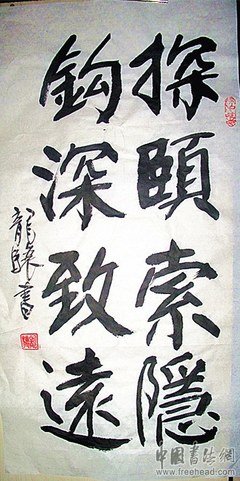 探頤索隱
鈎深致遠
龍 書
中國書法網
www.freehead.com